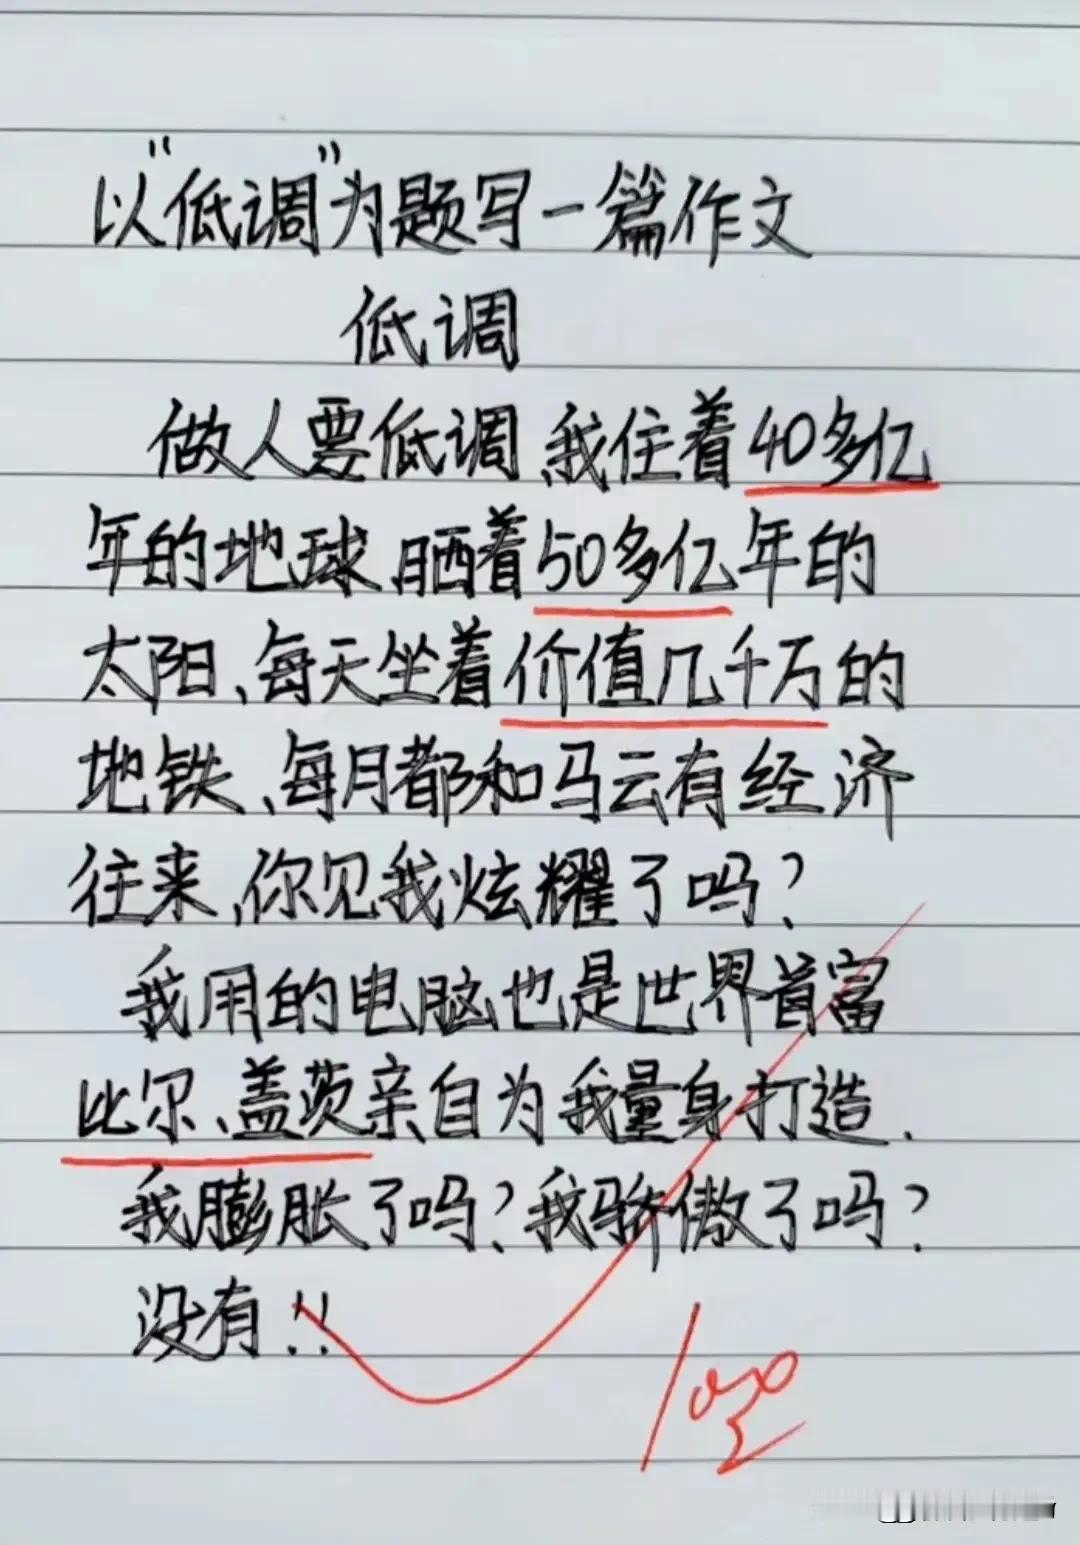 以“低调”为题写一篇作文
低调
做人要低调、我住着40多亿
年的地球、晒着50多亿年的
太阳、每天坐着价值几千万的
地铁、每月都和马云有经济
往来、你见我炫耀了吗？
我用的电脑也是世界首富
比尔、盖茨亲自为我量身打造.
我膨胀了吗？我骄傲了吗？
没有!!
100